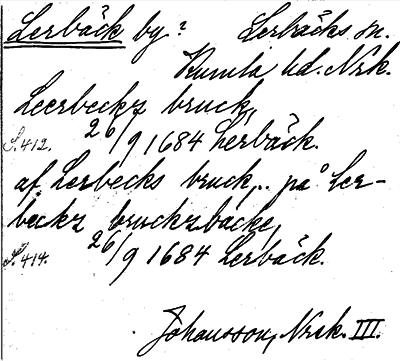 Lerbäck by? Lerbäcks sn.
Kumla hd. Nrk.
Leerbeckz bruck,
S. 412. 26/9 1684 Lerbäck.
af Lerbecks bruck,.. på Ler-
beckz bruckzbacke,
S. 414. 26/9 1684 Lerbäck.
Johansson, Nrk. III.